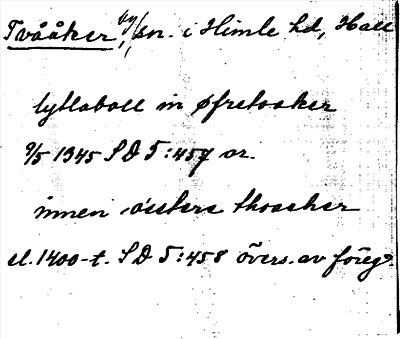 Tvååker, by/sn. i Himle hd, Hall
lyllaboll in øfretoaker
9/5 1345 SD 5:457 or.
innen østers thoaker
sl. 1400-t. SD 5:458 övers. av föreg.